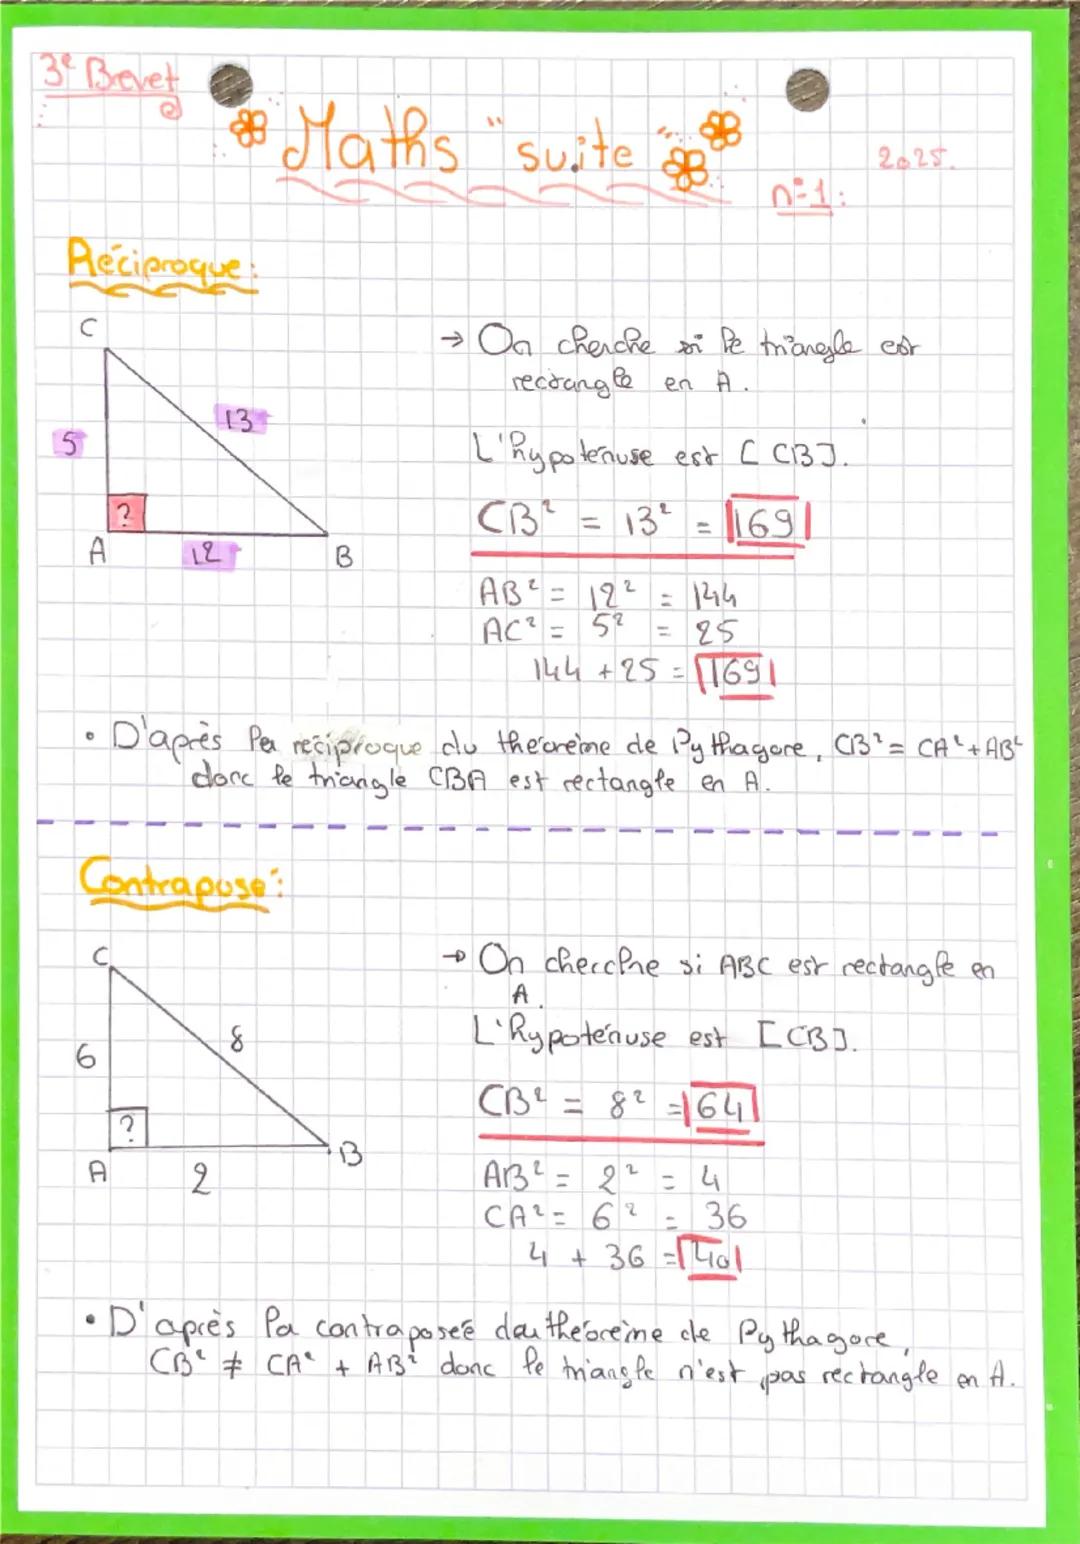 3e Brevet
Maths "suite"
2025.
n°1:
Réciproque:
C
→ On cherche si le triangle est
rectangle en A.
13
5
L'hypoténuse est [CB].
?
CB² = 13² = 169
A
12
B
AB² = 12² = 144
AC² = 5² = 25
144 + 25 = 169
• D'après la réciproque du théorème de Pythagore, CB² = CA² + AB²
donc le triangle CBA est rectangle en A.
Contraposé:
C
→ On cherche si ABC est rectangle en
A.
L'hypoténuse est [CB].
8
6
CB² = 8² = 64
?
A
2
B
AB² = 2² = 4
CA² = 6² = 36
4 + 36 = 40
• D'après la contraposée du théorème de Pythagore,
CB² ≠ CA² + AB² donc le triangle n'est pas rectangle en A.